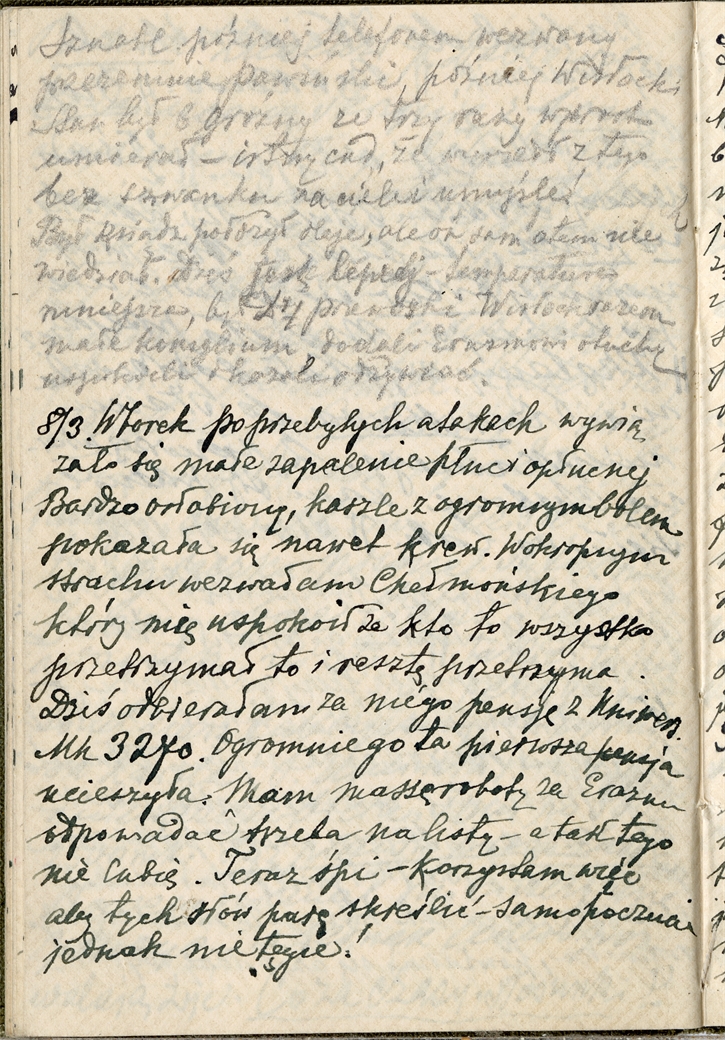 później telefonem wezwany
przezemnie Pawiński, później Wisłocki
Stan był b. groźny że trzy razy
umierał – istny cud, że z tego
bez szwanku na ciele i umyśle!
Był ksiądz położył oleje, ale on sam o tem nie
wiedział. Dziś jest lepiej – temperatura
mniejsza, był Dr Prawoski i Wisłocki razem
małe konsylium, dodali Erazmowi otuchy
uspokoili i kazali odżywiać.
8/3. Wtorek po przebytych atakach wywią
zało się małe zapalenie płuc i opłucnej
Bardzo osłabiony, kaszle z ogromnym bolem
pokazała się nawet krew. W okropnym
strachu wezwałam Chełmońskiego
który mię uspokoił że kto to wszystko
przetrzymał to i resztę przetrzyma.
Dziś odbierałam za niego pensję z Uniwers.
Mk 3270. Ogromnie go ta pierwsza pensja
ucieszyła. Mam massę roboty za Erazma
odpowiadać trzeba na listy – a tak tego
nie lubię. Teraz śpi – korzystam więc
aby tych słów parę skreślić – samopoczucie
jednak nietęgie!